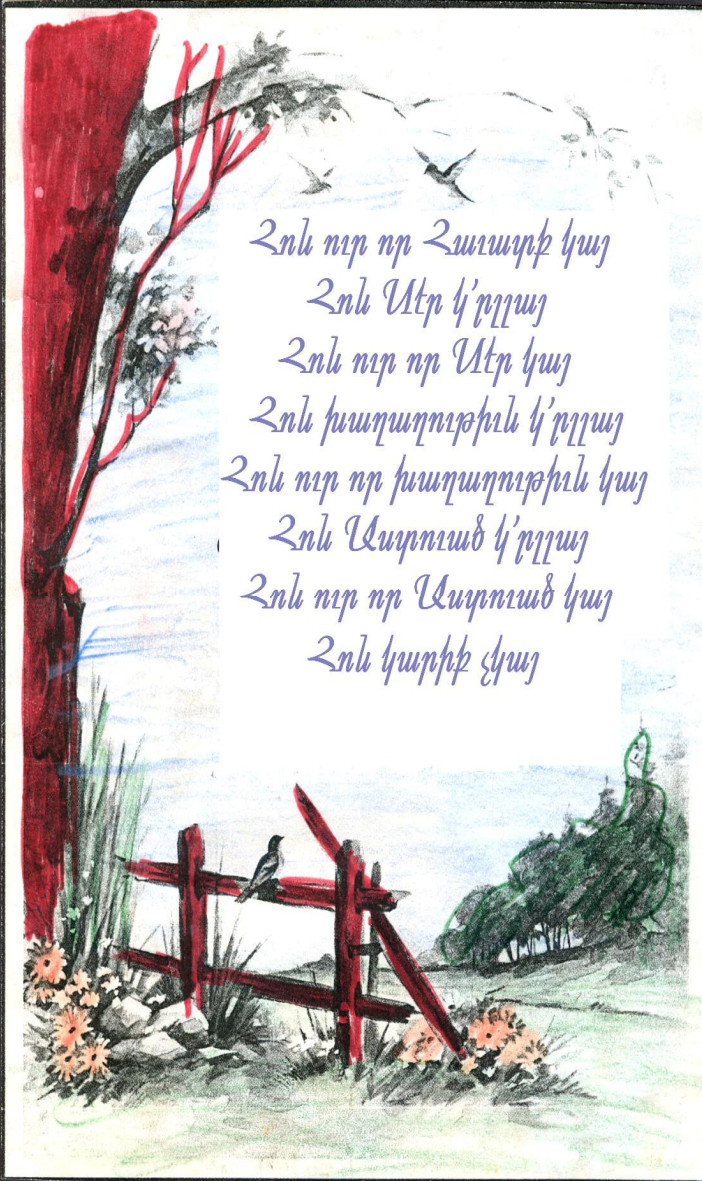 Հոն ուր որ Հաւատք կայ
Հոն Սէր կ՛ըլլայ
Հոն ուր որ Սէր կայ
Հոն խաղաղութիւն կ՛ըլլայ
Հոն ուր որ խաղաղութիւն կայ
Հոն Աստուած կ՛ըլլայ
Հոն ուր որ Աստուած կայ
Հոն կարիք չկայ